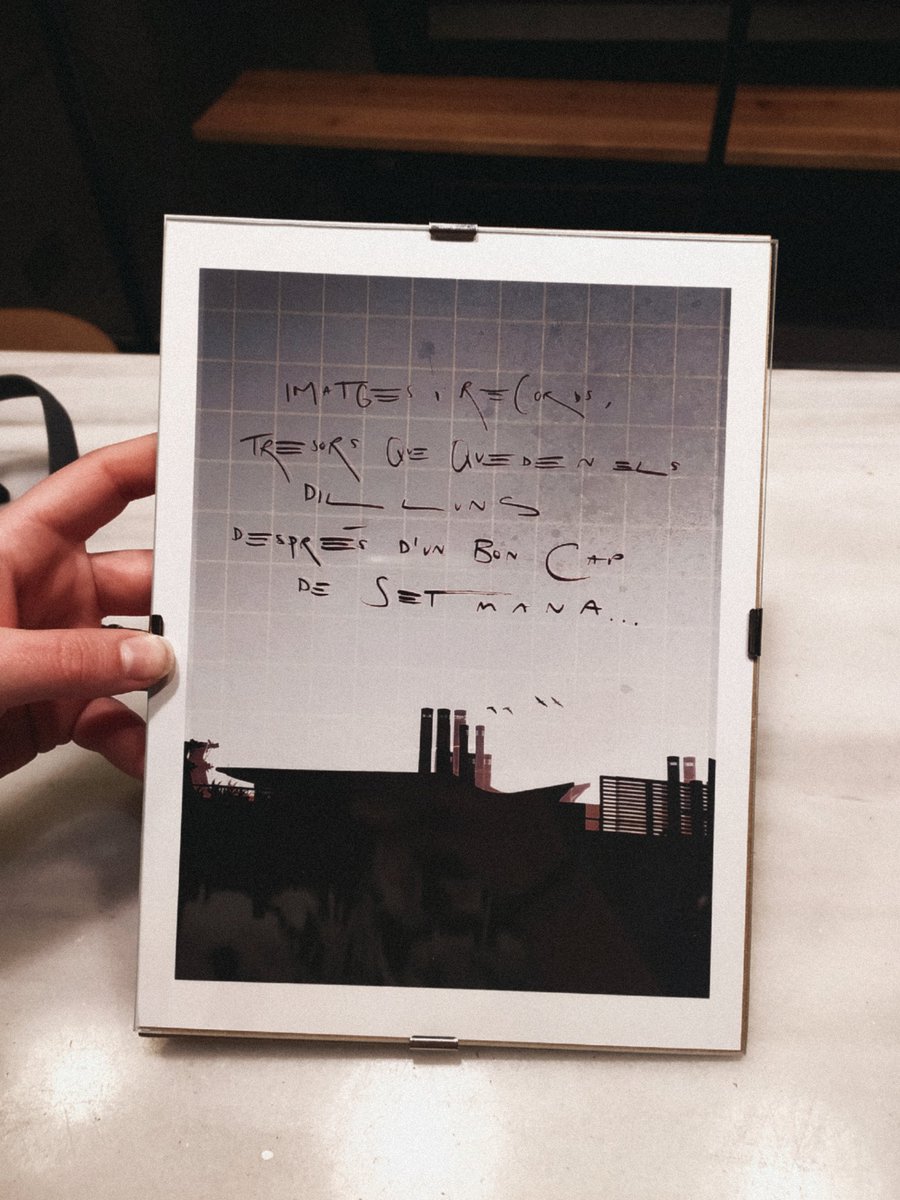 IMATGES I RECORDS,
TRESORS QUE QUEDEN ELS
DILLLUNS
DESPRÉS D'UN BON CAP
DE SETMANA...